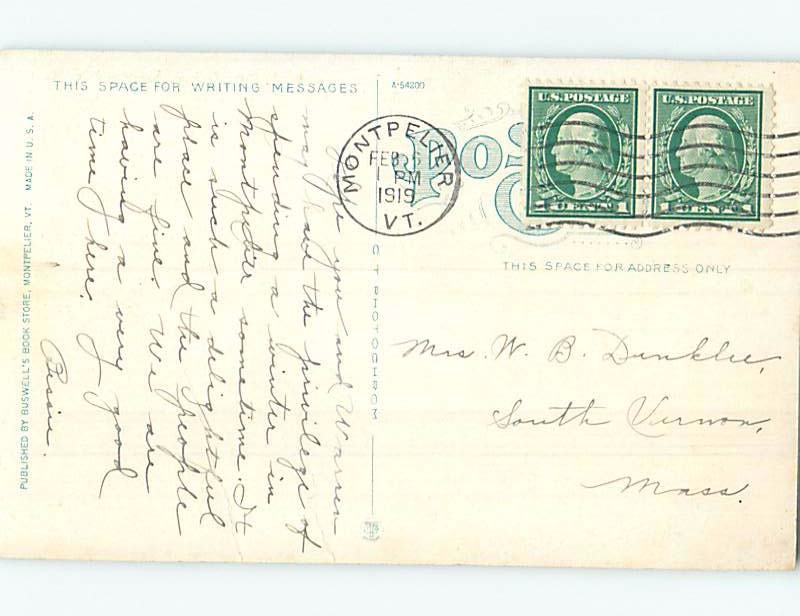 THIS SPACE FOR WRITING MESSAGES
A-54200
I hope you and Warren
may have the privilege of
spending a winter in
Montpelier sometime. It
is such a delightful
place and the people
are fine. We are
having a very good
time here.
Bessie.
PUBLISHED BY BUSWELL'S BOOK STORE, MONTPELIER, VT. MADE IN U.S.A.
C T PHOTOCHROM
MONTPELIER
FEB
PM
1919
VT.
U.S. POSTAGE
1 CENT 1
U.S. POSTAGE
1 CENT 1
THIS SPACE FOR ADDRESS ONLY
Mrs. W. B. Dunklee,
South Vernon,
Mass.